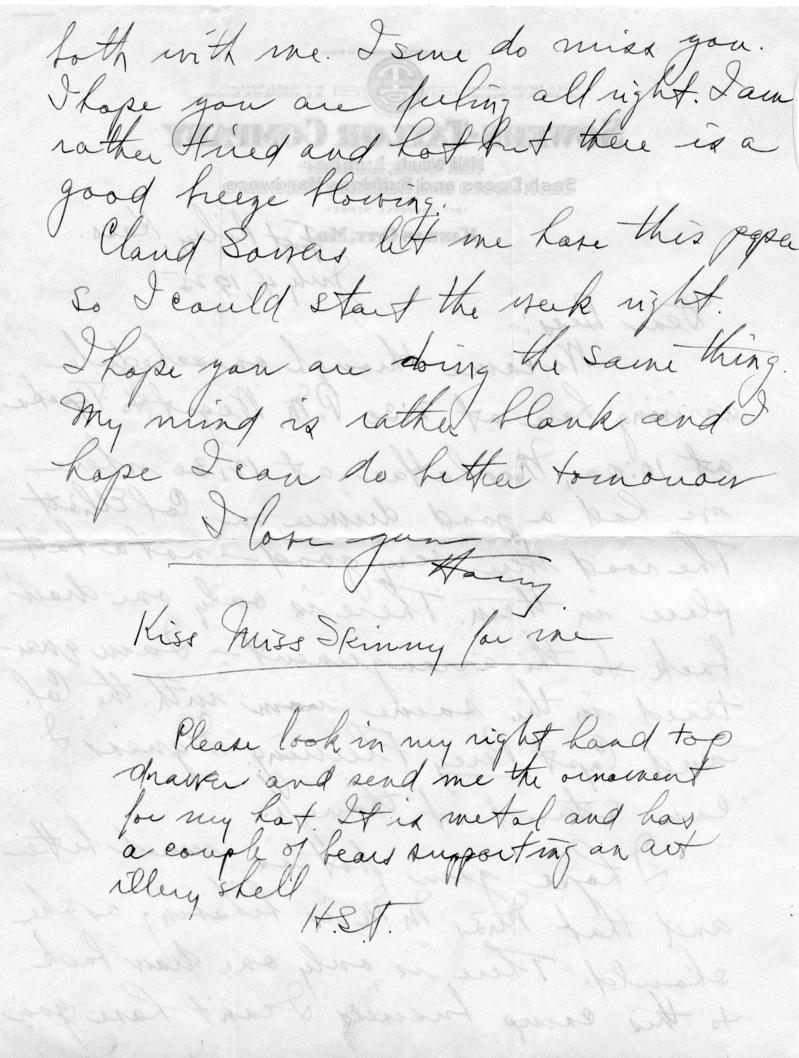 both with me. I sure do miss you.
I hope you are feeling all right. I am
rather tired and hot but there is a
good breeze blowing.
Claud Sowers let me have this paper
so I could start the week right.
I hope you are doing the same thing.
My mind is rather blank and I
hope I can do better tomorrow
I love you
Harry.
Kiss Miss Skinny for me
Please look in my right hand top
drawer and send me the ornament
for my hat. It is metal and has
a couple of bears supporting an art
illery shell
H.S.T.